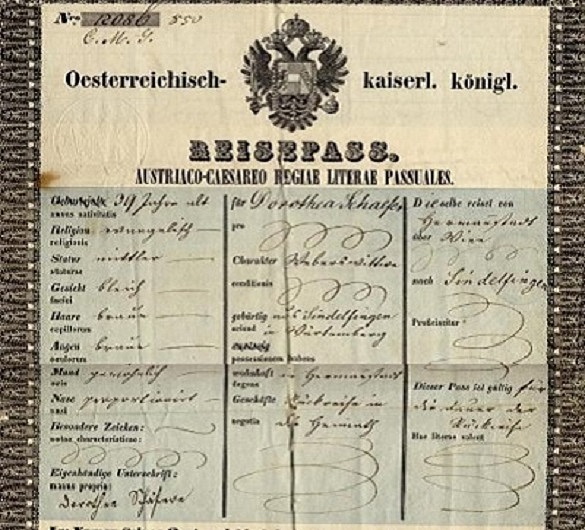 Nro. 12086 850
C. M. I.
Oesterreichisch- kaiserl. königl.
REISEPASS.
AUSTRIACO-CAESAREO REGIAE LITERAE PASSUALES.
Geburtsjahr 39 Jahre alt
annus nativitatis
Religion evangelisch
religionis
Statur mittler
staturae
Gesicht bleich
faciei
Haare braun
capillorum
Augen braun
oculorum
Mund gewöhnlich
oris
Nase proportionirt
nasi
Besondere Zeichen:
notae characteristicae:
Eigenhändige Unterschrift:
manus propria:
Dorothea Schäfer
für Dorothea Schaefer
pro
Charakter Weberswittwe
conditionis
gebürtig aus Sindelfingen
oriund in Würtemberg
possessionem habens
wohnhaft in Hermannstadt
degens
Geschäfte Rükreise in
negotia die Heimath
Dieselbe reiset von
Hermannstadt
über Wien
nach Sindelfingen
Proficiscitur
Dieser Pass ist gültig für
die dauer der
Rükreise
Hae literae valent